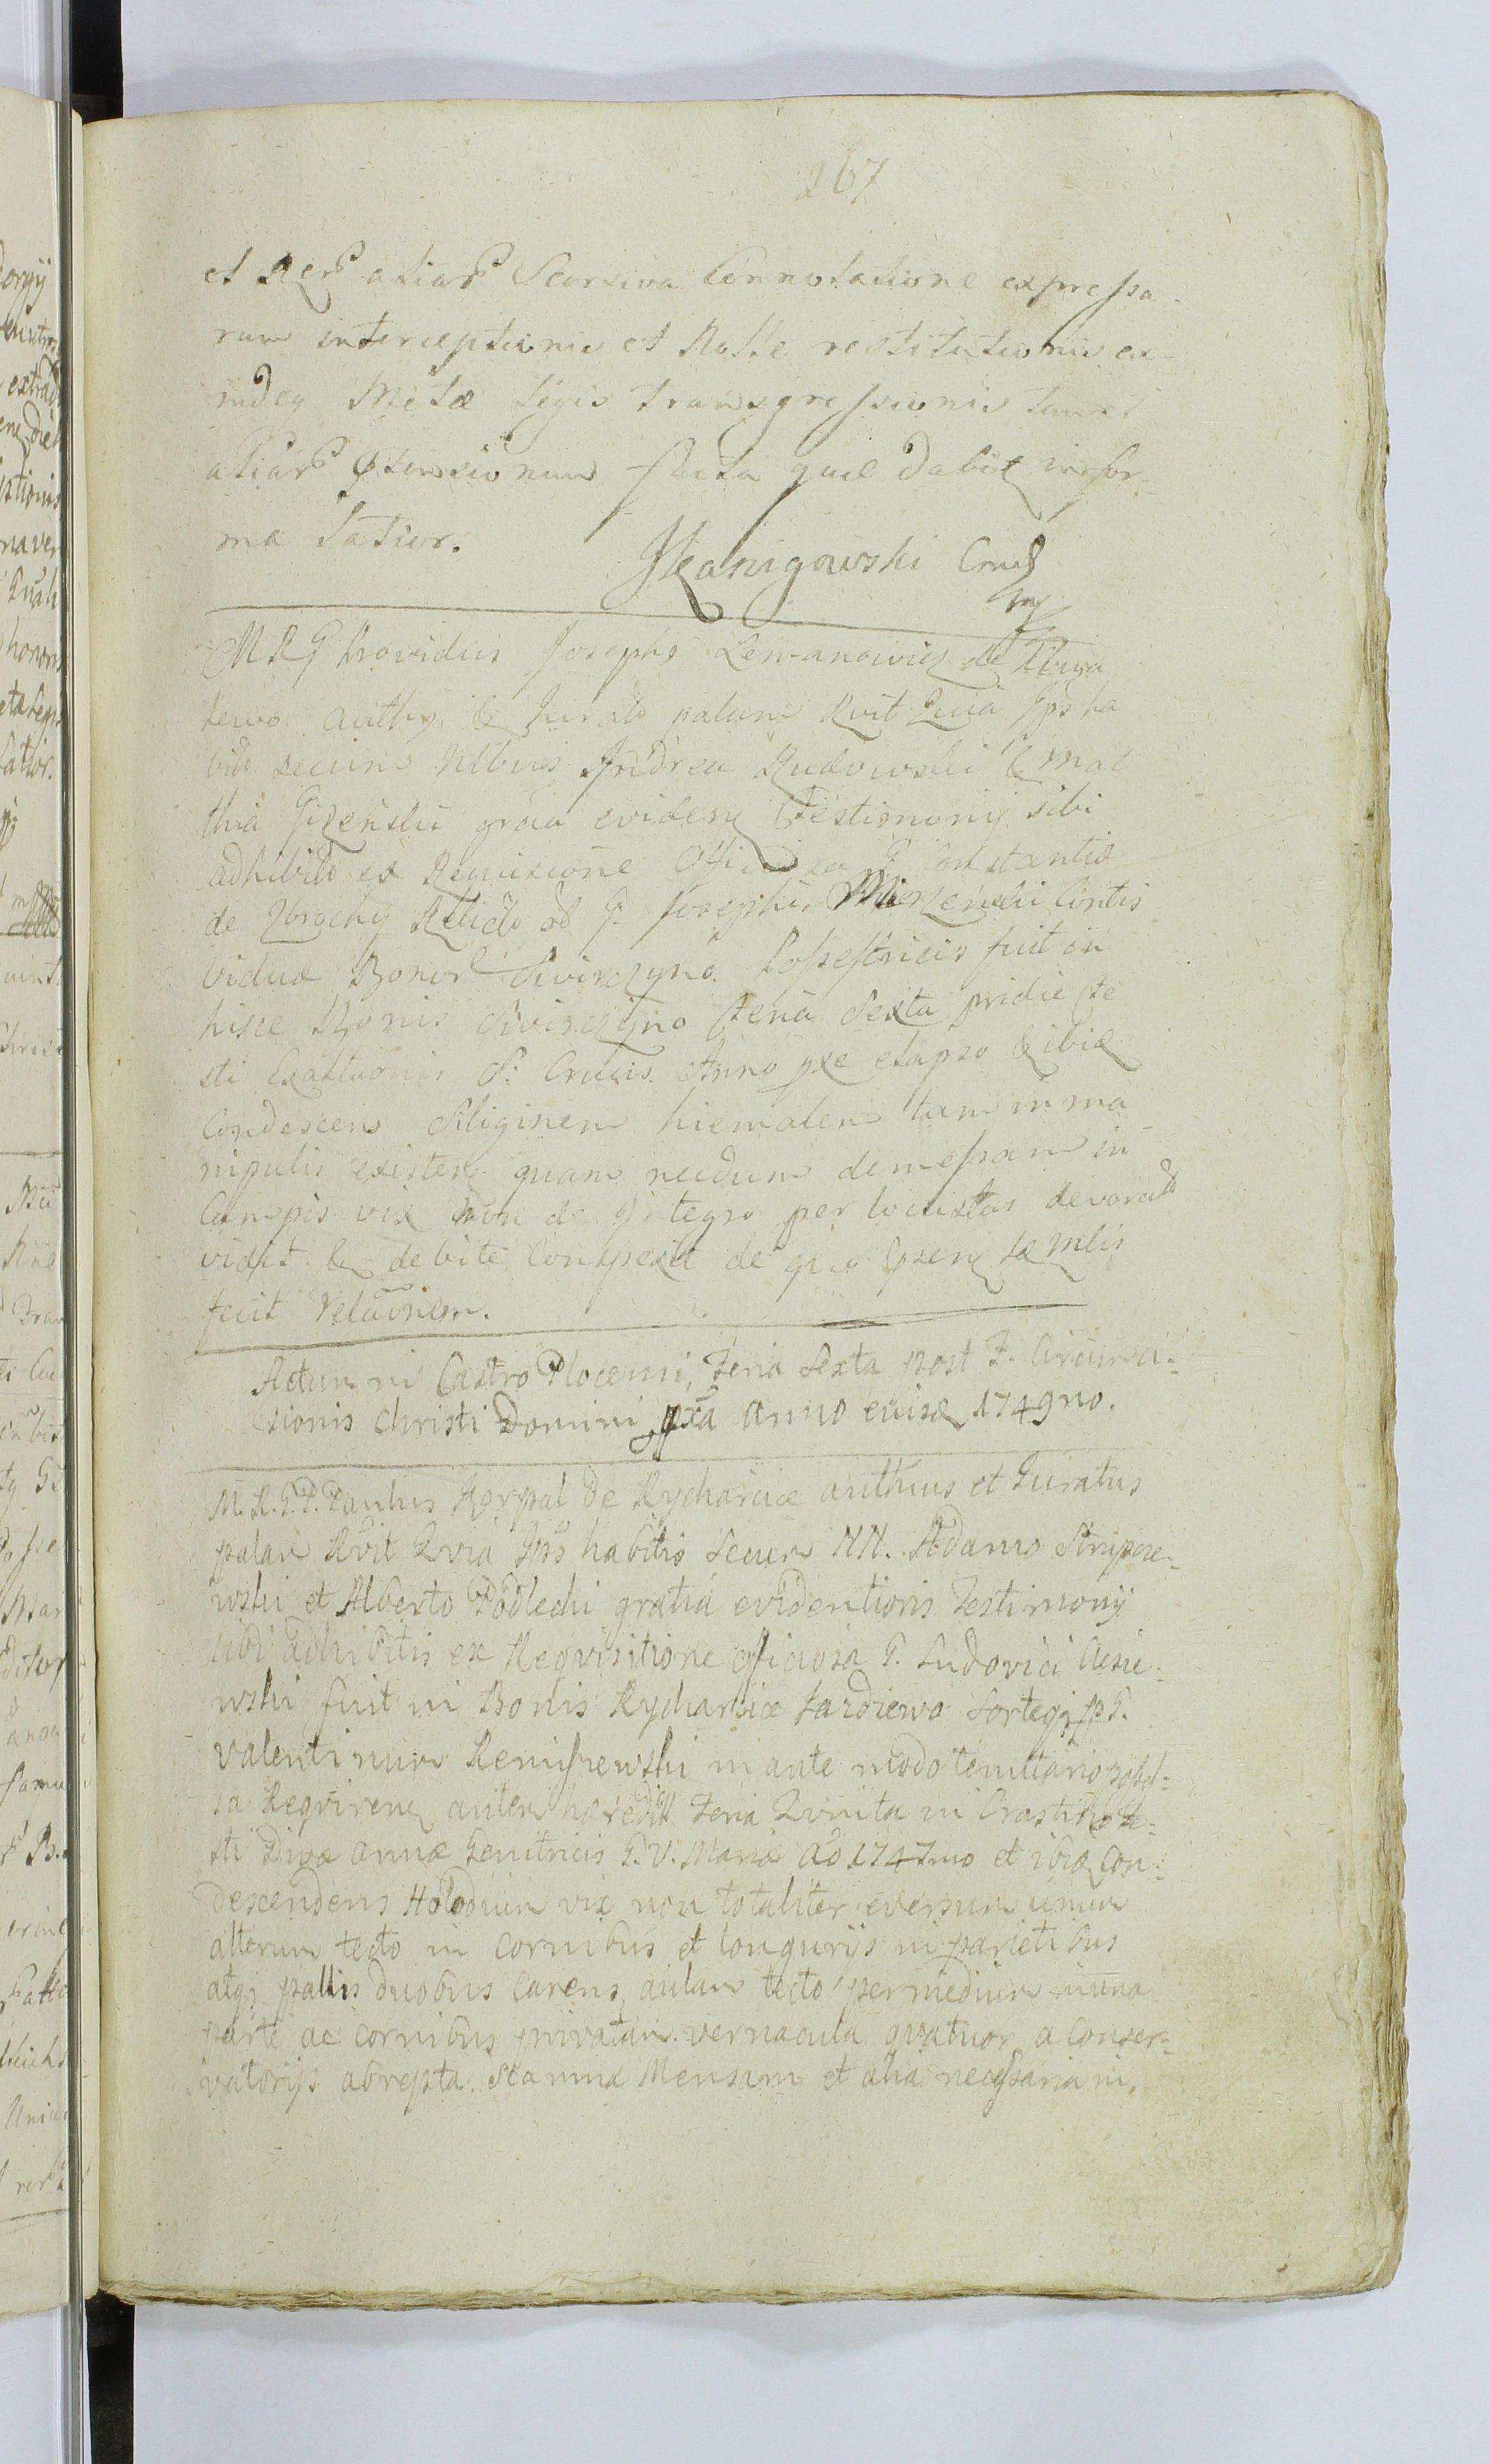 267
et Rerū aliarū Seorsiva Connotatione expressa-
rum interceptionis et Nolle restitutionis ex-
indeq Metæ Legis transgressionis
aliarū ptensionum ruta quæ dabit infor-
ma Latior.
JKanigowski
M R G Providus Josephs de
tewo auths & Jurats palam Rvit Quia Ips ha
bits secum Nlbus Andrea Rudowski & Mat
thia Gizenski gratia evidens testimonij sibi
adhibits ex Requisitione Officiosa G. Constantiæ
de Zbrochy Relicto od G. Josephi Mierzenski Contis
Viduæ Bonor Swirczyno Possestricis fuit in
hisce Bonis Swirczyno feria Sexta pridie Fe
sti Exaltaonis S. Crucis Anno pxe elapso & ibiq
Condescens Siliginem hiemalem tam in ma
nipulis existen quam necdum demessam in
Campis vix non de Integro per locustas devorats
vidit & debite Conspexit de quo psens sæ mlis
fecit Relaonem.
Actum in Castro Plocensi, Feria Sexta post F. Circumci-
sionis Christi Domini pxa Anno eiusq 1749no.
M. R. G. P. Paulus Karpal de Rycharcice authius et Juratus
palam Rvit Qvia Ips habitis secum NN. Adamo Strupcze-
wski et Alberto Podlecki gratia evidentioris Testimonij
sibi adhibitis ex Reqvisitione officiosa G. Ludovici Ciesie-
wski fuit in Bonis Rycharcice Jardiewo Sorteq p G.
Valentinum Reniszewski in ante modo tenutario possess-
sa Reqvirens autem hæredit Feria Qvinta in Crastino Fe-
sti Divæ Annæ Genitricis B. V. Mariæ Ao 1747mo et ibiq Con-
descendens Holodium vix non totaliter eversum unum
alterum tecto in Cornibus et longurijs in parietibus
atq pallis duobus Carens, aulam tecto per medium in una
parte ac cornibus privatam vernacula qvatuor a Conser-
vatorijs abrepta. Scamna Mensam et alia necessaria in,